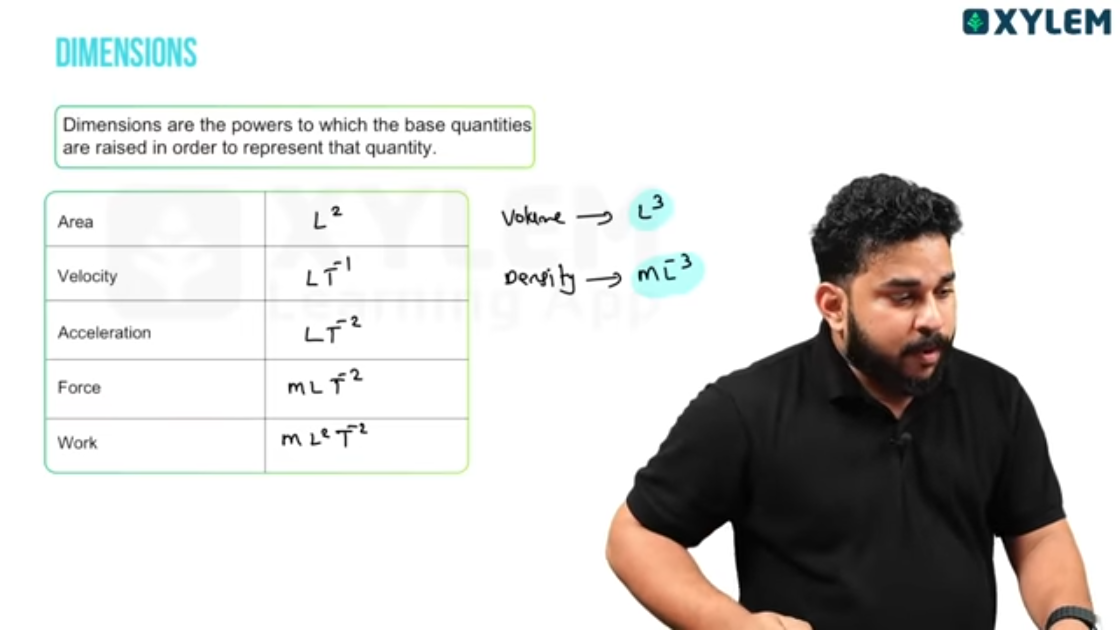 XYLEM
DIMENSIONS
Dimensions are the powers to which the base quantities
are raised in order to represent that quantity.
Area L²
Velocity LT⁻¹
Acceleration LT⁻²
Force mLT⁻²
Work mL²T⁻²
Volume → L³
Density → mL⁻³
XYLEM
Learning App